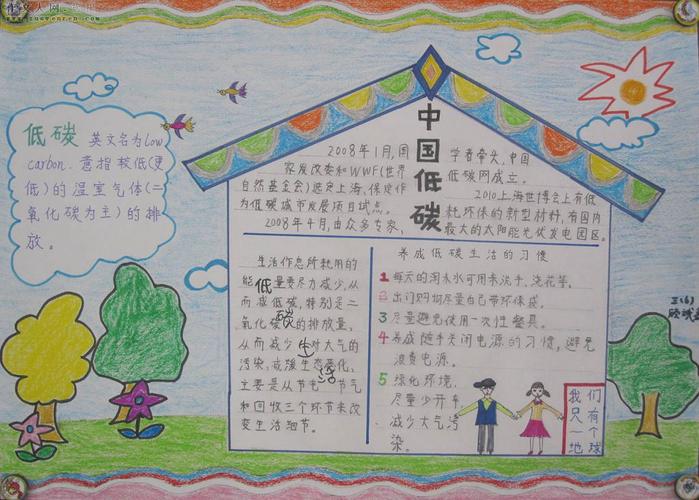 低碳 英文名为low
carbon. 意指较低(更
低)的温室气体(二
氧化碳为主)的排
放。
中国低碳
2008年1月,国
家发改委和WWF(世界
自然基金会)选定上海,保定作
为低碳城市发展项目试点。
2008年4月,由众多专家、
学者牵头,中国
低碳网成立。
2010上海世博会上有低
耗环保的新型材料,有国内
最大的太阳能光伏发电园区。
低碳生活
生活作息所耗用的
能量要尽力减少,从
而减低碳,特别是二
氧化碳的排放量,
从而减少对大气的
污染,减缓生态恶化,
主要是从节电 节气
和回收三个环节来改
变生活细节。
养成低碳生活的习惯
1 每天的淘米水可用来洗手、浇花等。
2 出门购物尽量自己带环保袋。
3 尽量避免使用一次性餐具。
4 养成随手关闭电源的习惯,避免
浪费电源。
5 绿化环境,
尽量少开车,
减少大气污
染。
我们
只有
一个
地球
三(6)